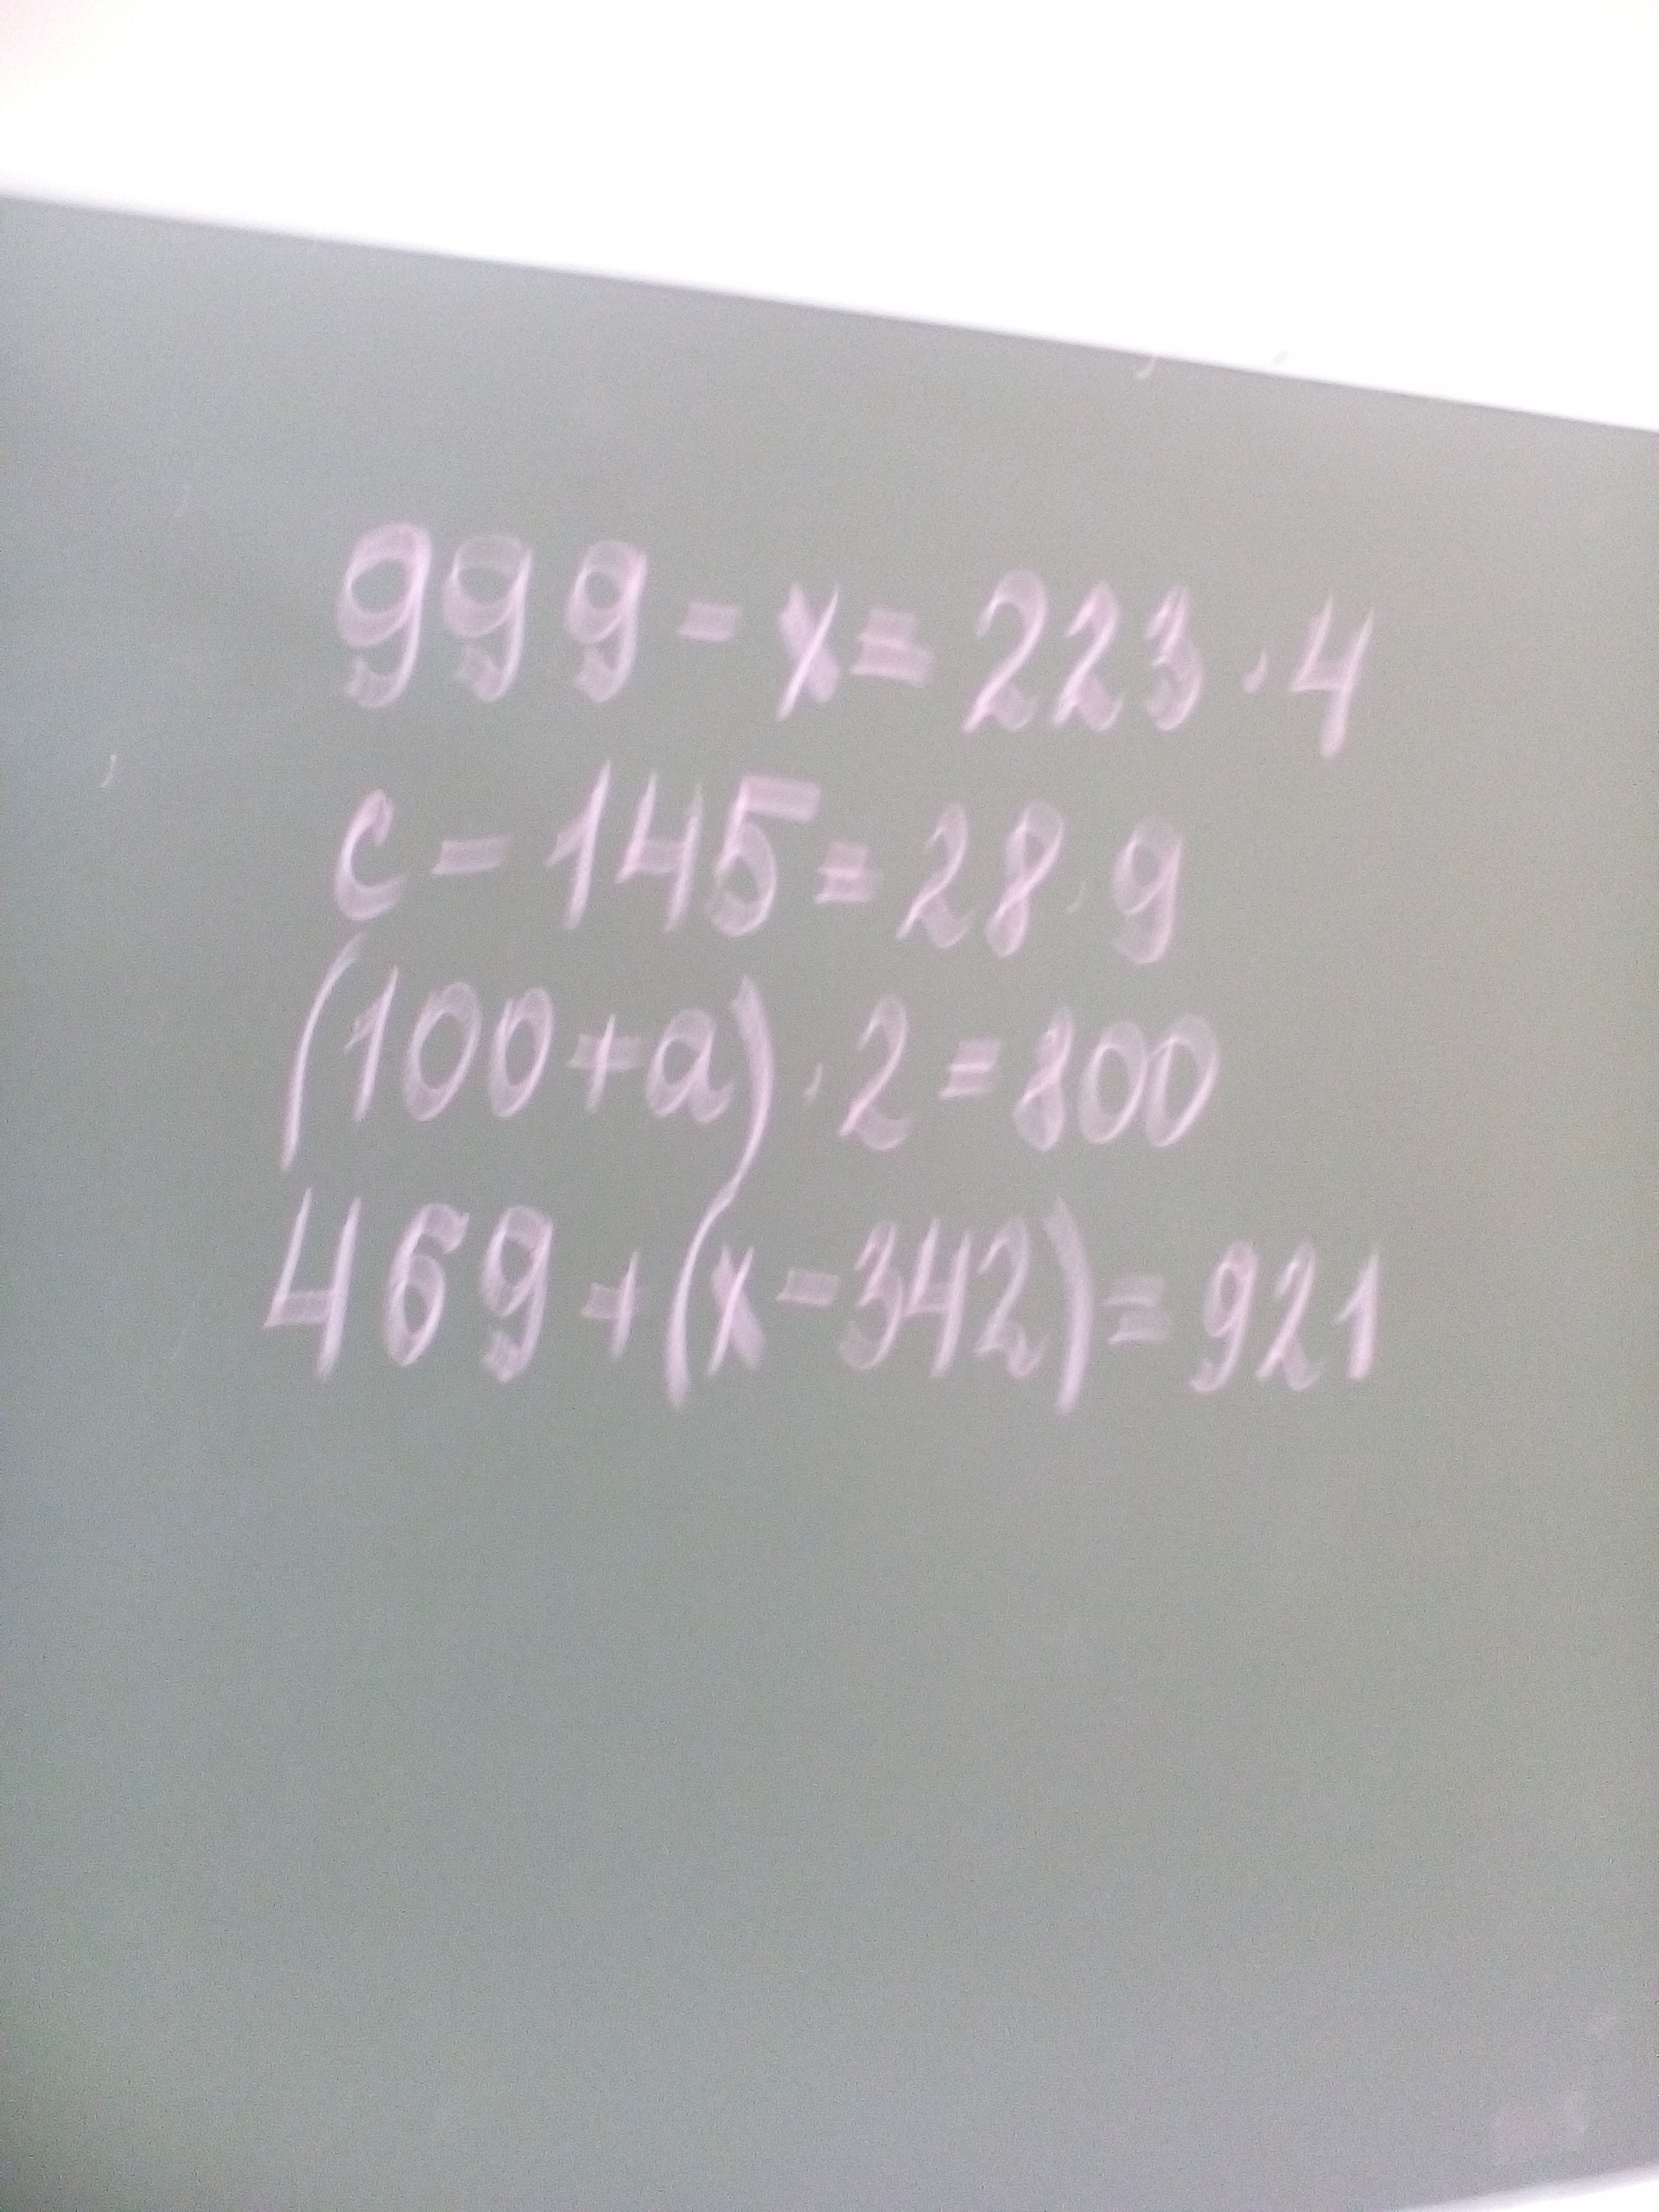 999 - x = 223 · 4
c - 145 = 28 · 9
(100 + a) · 2 = 800
469 + (x - 342) = 921